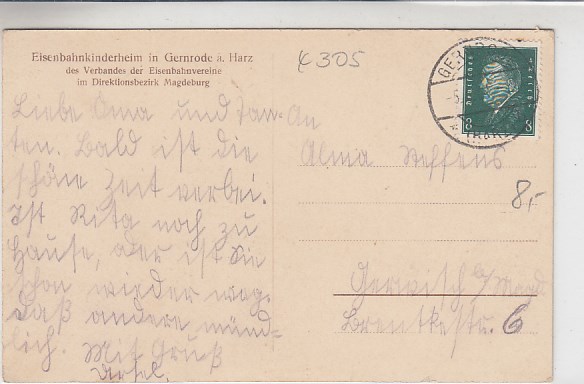 Eisenbahnkinderheim in Gernrode a. Harz
des Verbandes der Eisenbahnvereine
im Direktionsbezirk Magdeburg
Liebe Oma und Tan-
ten. Bald ist die
schöne Zeit vorbei.
Ist Rita noch zu
Hause, oder ist Sie
schon wieder weg.
Daß andere münd-
lich. Mit Gruß
K 305
GERNRODE
(HARZ)
Deutsches Reich
8 8
An
Alma Steffens
8,-
Gerwisch b/Magd
Brentkestr. 6